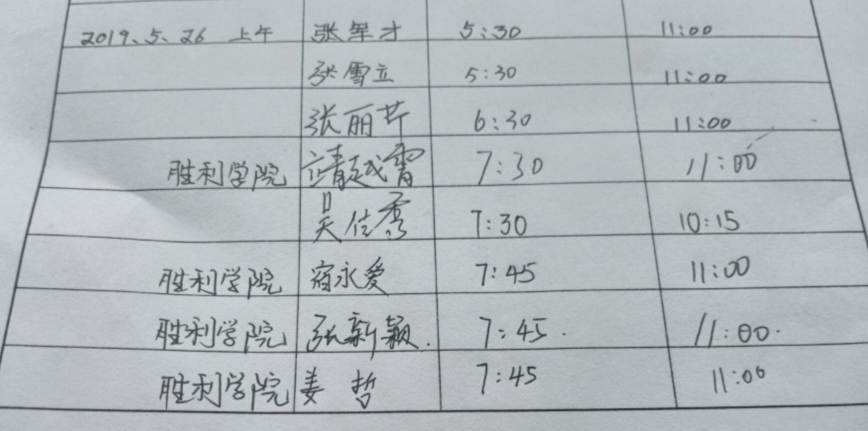 2019、5、26 上午 张军才 5:30 11:00
张雪立 5:30 11:00
张丽芹 6:30 11:00
胜利学院 靖越霄 7:30 11:00
吴佳秀 7:30 10:15
胜利学院 宿永爱 7:45 11:00
胜利学院 张新颖. 7:45. 11:00.
胜利学院 姜哲 7:45 11:00